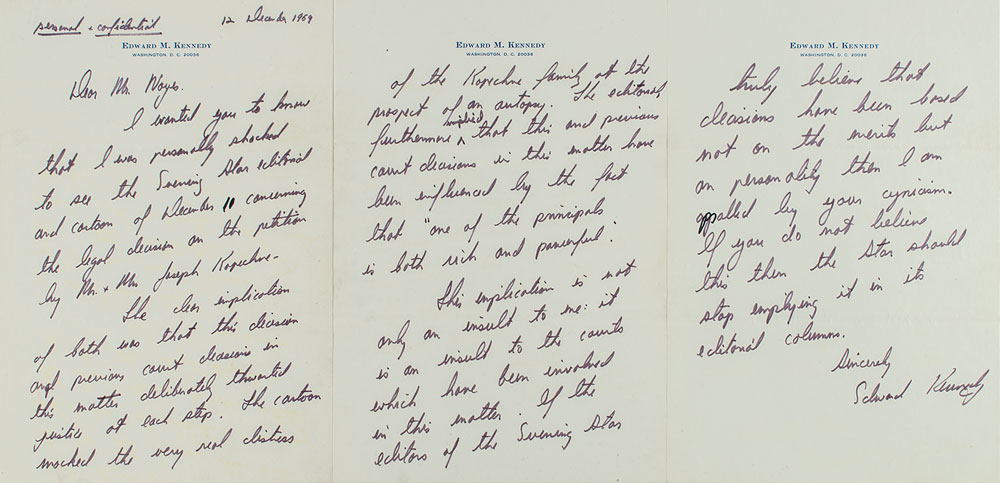 personal + confidential
12 December 1969
EDWARD M. KENNEDY
WASHINGTON, D. C. 20036
Dear Mr. Noyes.
I wanted you to know
that I was personally shocked
to see the Evening Star editorial
and cartoon of December 11 concerning
the legal decision on the petition
by Mr. + Mrs Joseph Kopechne.
The clear implication
of both was that this decision
and previous court decisions in
this matter deliberately thwarted
justice at each step. The cartoon
mocked the very real distress
EDWARD M. KENNEDY
WASHINGTON, D. C. 20036
of the Kopechne family at the
prospect of an autopsy. The editorial
furthermore implied that this and previous
court decisions in this matter have
been influenced by the fact
that "one of the principals
is both rich and powerful".
This implication is not
only an insult to me: it
is an insult to the courts
which have been involved
in this matter. If the
editors of the Evening Star
EDWARD M. KENNEDY
WASHINGTON, D. C. 20036
truly believe that
decisions have been based
not on the merits but
on personality then I am
appalled by your cynicism.
If you do not believe
this then the Star should
stop emplying it in its
editorial columns.
Sincerely
Edward Kennedy